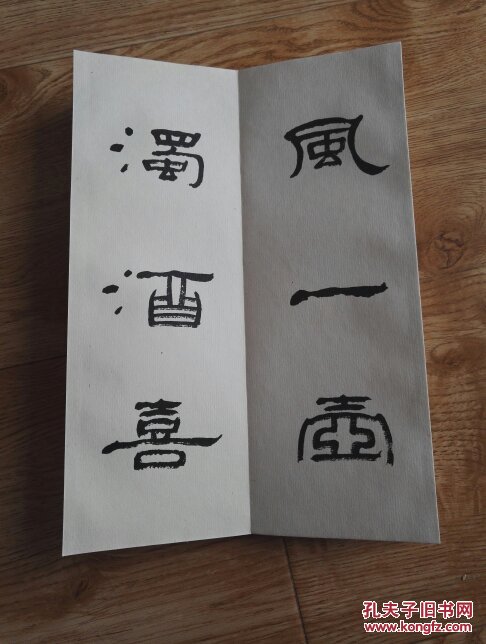 風一壺
濁酒喜
孔夫子旧书网
www.kongfz.com